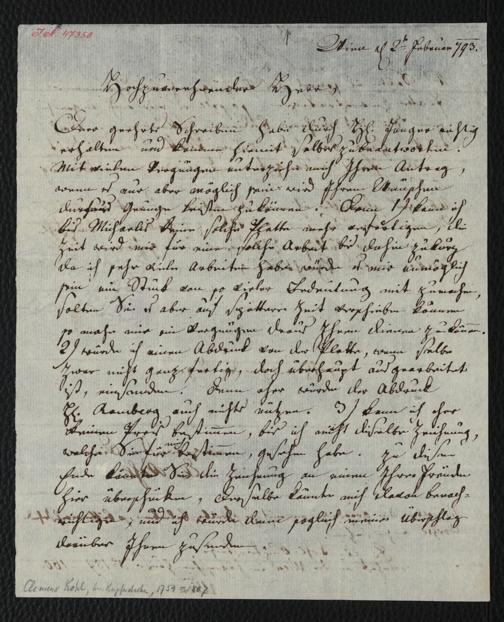 Wien d 2t Februar 793.
Hochzuverehrender Herr
Dero geehrtes Schreiben habe durch H. Jünger richtig
erhalten und komme hiemit selbes zu beantworten.
Mit vielen Vergnügen unterziehe mich Ihren Antrag,
wenn es nur aber möglich sein wird Ihrem Wunsche
Genüge leisten zu können. Denn 1) kann ich
bis Michaelis keine solche Platte mehr verfertigen, die
Zeit wird mir für eine solche Arbeit bis dahin zu kurz
da ich sehr viele Arbeiten habe würde es mir unmöglich
sein ein Stück von so vieler Bedeutung mit zu machen,
solten Sie es aber auf spättere Zeit verschieben können
so mache mir ein Vergnügen daraus Ihnen dienen zu können.
2) würde ich einen Abdruck von der Platte, wenn selbe
zwar nicht ganz fertig, doch überhaupt aus gearbeitet
ist, einsenden. Denn eher würde der Abdruck
H. Ramberg auch nichts nützen. 3) kann ich eher
keinen Preis bestimmen, bis ich nicht dieselbe Zeichnung,
welche Sie für bestimmen, gesehen habe. Zu diesen
Ende können Sie die Zeichnung an einen Ihrer Freunde
hier überschicken, derselbe könnte mich davon benach-
richtigen, und ich würde dann sogleich meinen Überschlag
darüber Ihnen zusenden
Clemens Kohl, Kupferstecher, 1754